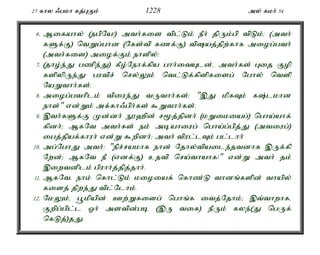 27 காலஃபமா கத்புகும் 1228 அல் கமர் 54
6. ஆகையால் (நபியே) அவர்களை விட்டும் நீர் திரும்பி விடும்; (அவர்
களுக்கு) வெறுப்பான (கேள்வி கணக்கு) விஷயத்திற்காக அழைப்பவர்
(அவர்களை) அழைக்கும் நாளில்;
7. (தாழ்ந்து பணிந்து) கீழ்நோக்கிய பார்வையுடன், அவர்கள் புதை குழி
களிலிருந்து பரவிச் செல்லும் வெட்டுக்கிளிகளைப் போல் வெளி
யேறுவார்கள்.
8. அழைப்பவரிடம் விரைந்து வருவார்கள்; "இது மிகவும் கஷ்டமான
நாள்" என்றும் அக்காஃபிர்கள் கூறுவார்கள்.
9. இவர்களுக்கு முன்னர் நூஹின் சமூத்தினர் (மறுமையைப்) பொய்யாக்
கினர்; ஆகவே அவர்கள் நம் அடியாரைப் பொய்ப்பித்து (அவரைப்)
பைத்தியக்காரர் என்று கூறினர்; அவர் விரட்டவும் பட்டார்
10. அப்போது அவர்: "நிச்சயமாக நான் தோல்வியடைந்தவனாக இருக்கி
றேன்; ஆகவே நீ (எனக்கு) உதவி செய்வாயாக!" என்று அவர் தம்
இறைவனிடம் பிரார்த்தித்தார்.
11. ஆகவே, நாம் கொட்டும் மழையைக் கொண்டு வானங்களின் வாயில்
களைத் திறந்து விட்டோம்.
12. மேலும், பூமியின் ஊற்றுகளைப் பொங்க வைத்தோம்; இவ்வாறாக,
குறிப்பிட்ட ஓர் அளவின்படி (இரு வகை) நீரும் கலந்(து பெருக்
கெடுத்)தது.